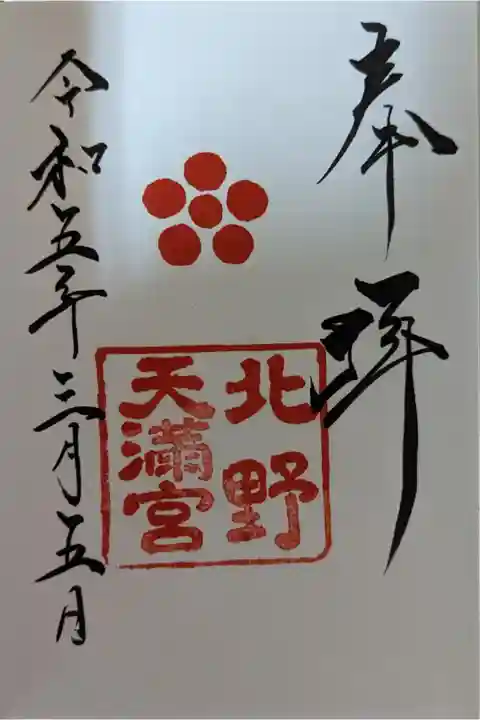 奉拝
北野
天満宮
令和五年三月五月